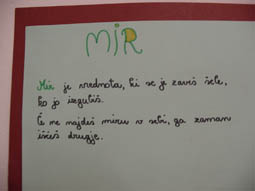 MIR
Mir je vrednota, ki se je zaveš šele,
ko jo izgubiš.
Če ne najdeš miru v sebi, ga zaman
iščeš drugje.